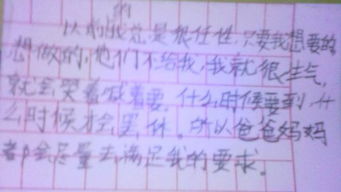 以前的我总是很任性，只要我想要的
想做的，他们不给我，我就很生气，
就会哭着喊着要，什么时候要到，什
么时候才会罢休。所以爸爸妈妈
都会尽量去满足我的要求。